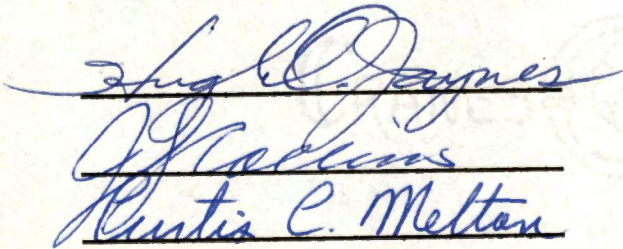 Hugh O. Jaynes
J L Collins
Curtis C. Melton